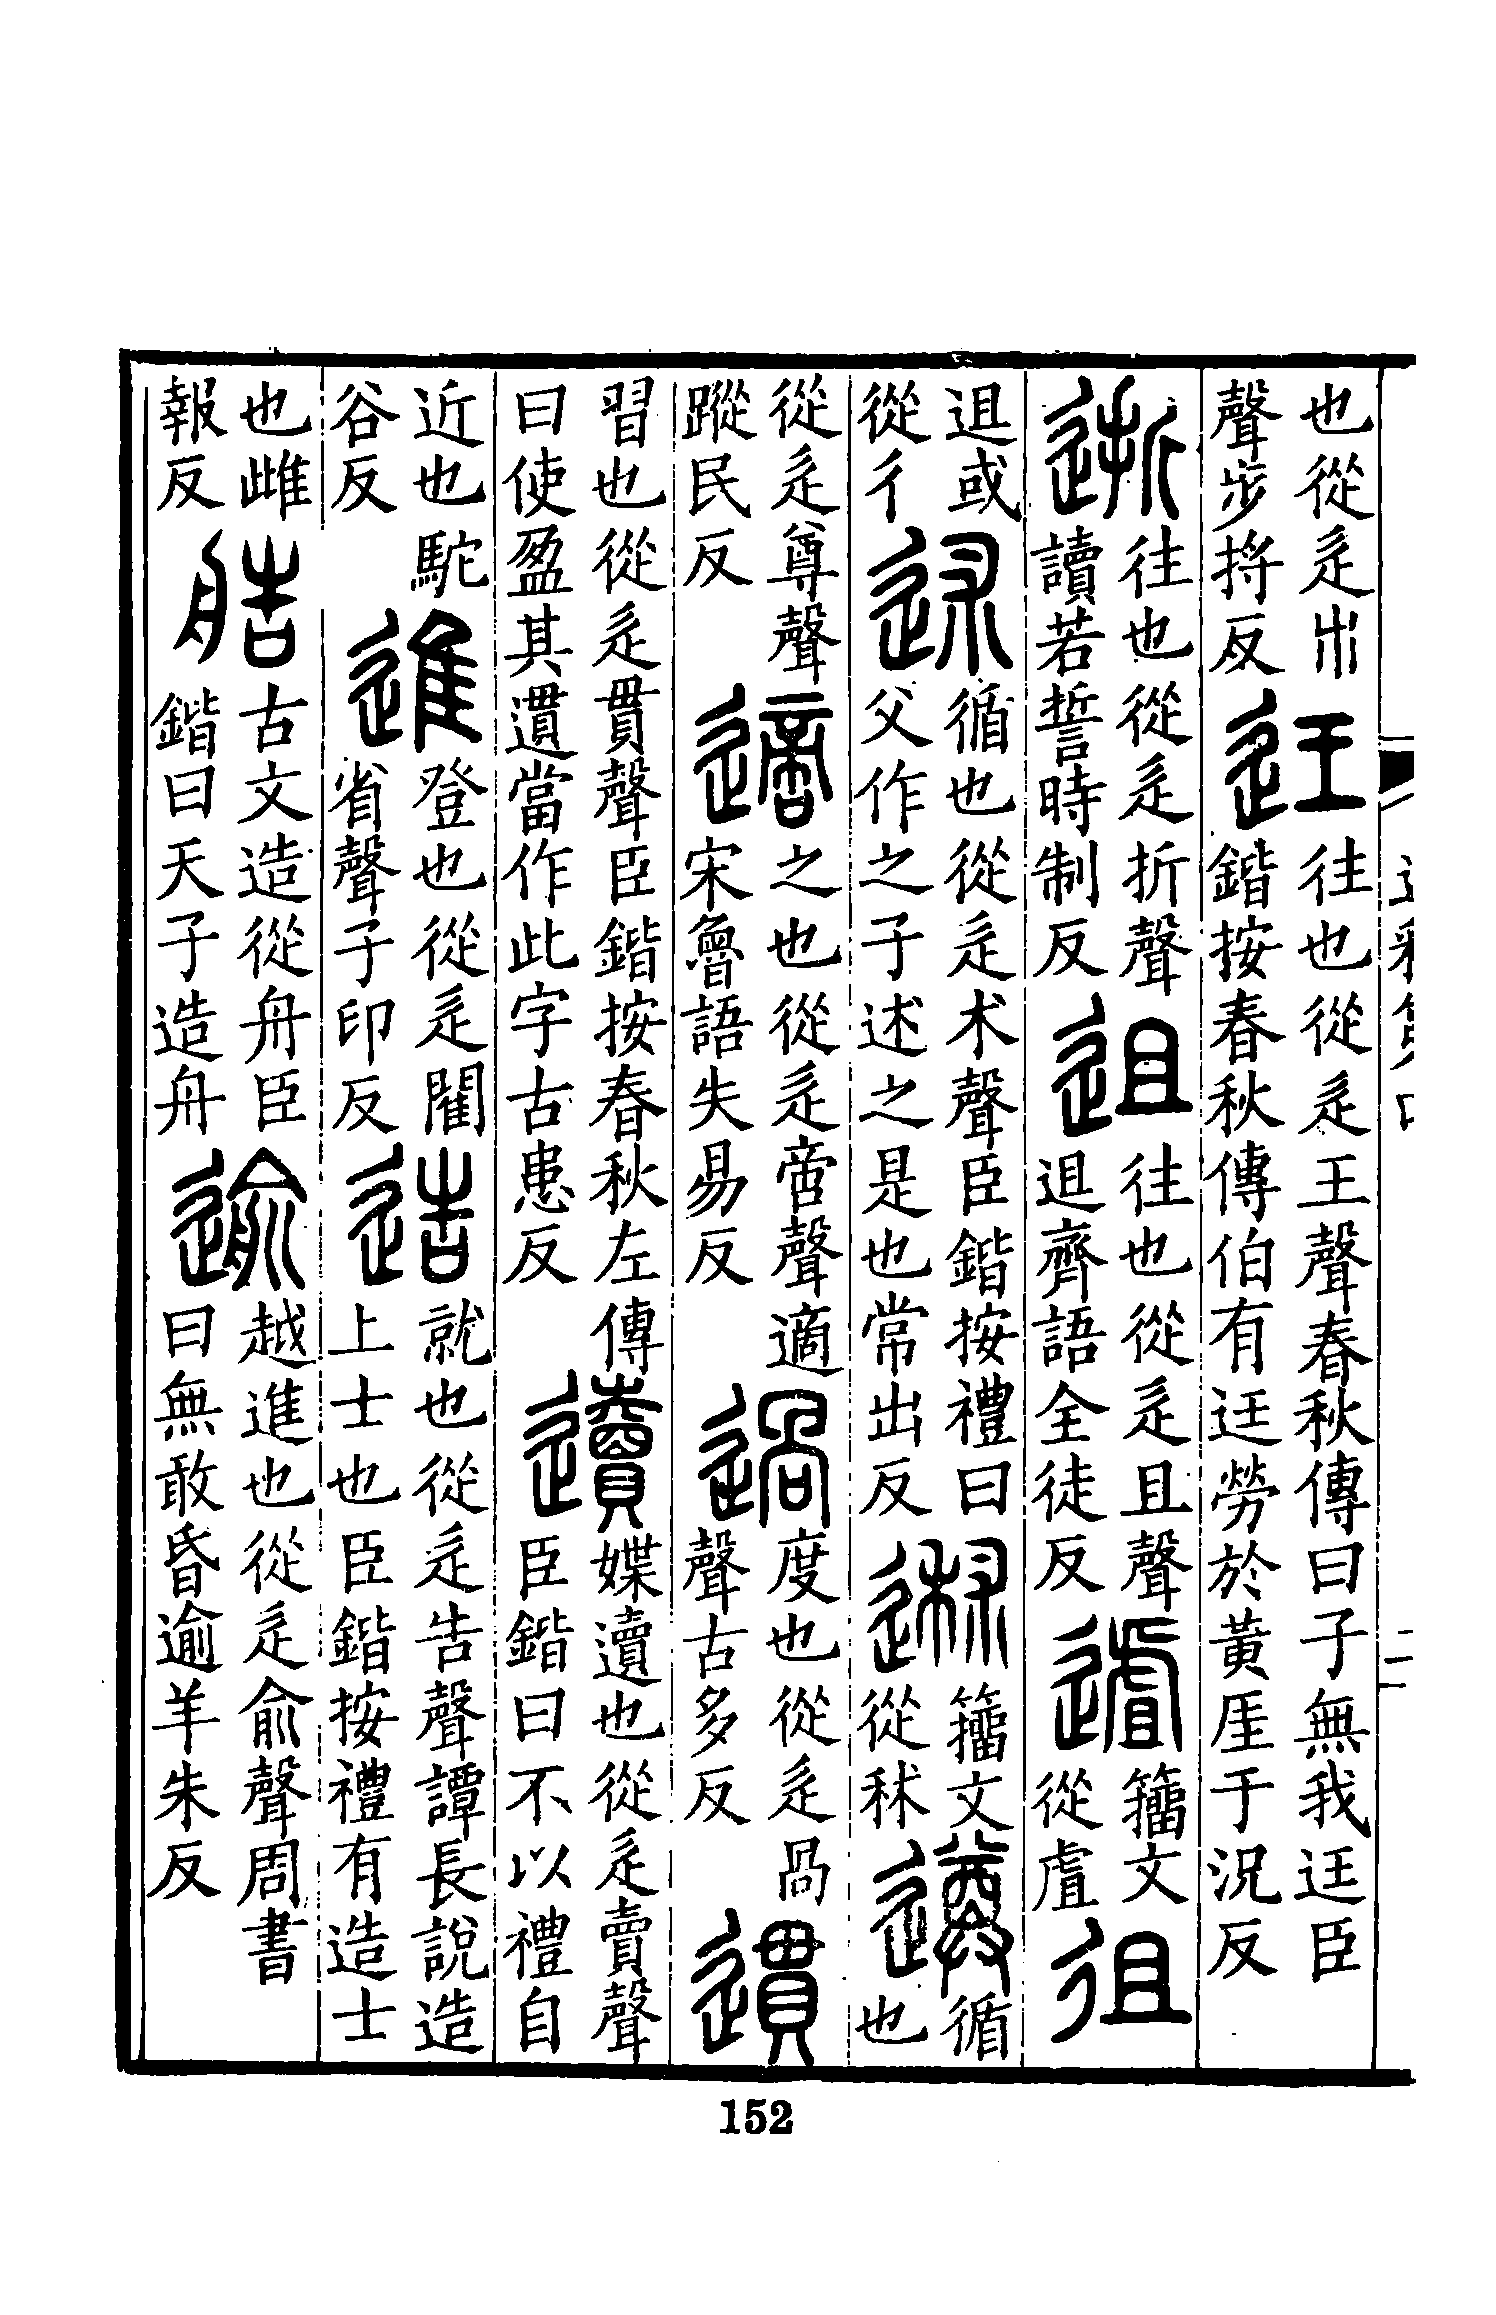 也從辵𣎵聲步捋反
迋
往也從辵王聲春秋傳曰子無我迋臣
鍇按春秋傳伯有迋勞於黃厓于況反
逝
往也從辵折聲
讀若誓時制反
𨑲
往也從辵且聲
𨑲齊語全徒反
籀文
從虘
徂
𨑲或
從彳
述
循也從辵术聲臣鍇按禮曰
父作之子述之是也常出反
籀文
從秫
遵
循
也
從辵尊聲
蹤民反
適
之也從辵啻聲適
宋魯語失易反
過
度也從辵咼
聲古多反
遦
習也從辵貫聲臣鍇按春秋左傳
曰使盈其遦當作此字古患反
媟也從辵賣聲
臣鍇曰不以禮自
近也駝
谷反
進
登也從辵閵
省聲子印反
造
就也從辵告聲譚長說造
上士也臣鍇按禮有造士
也雌
報反
艁
古文造從舟臣
鍇曰天子造舟
逾
越進也從辵俞聲周書
曰無敢昏逾羊朱反
二
152